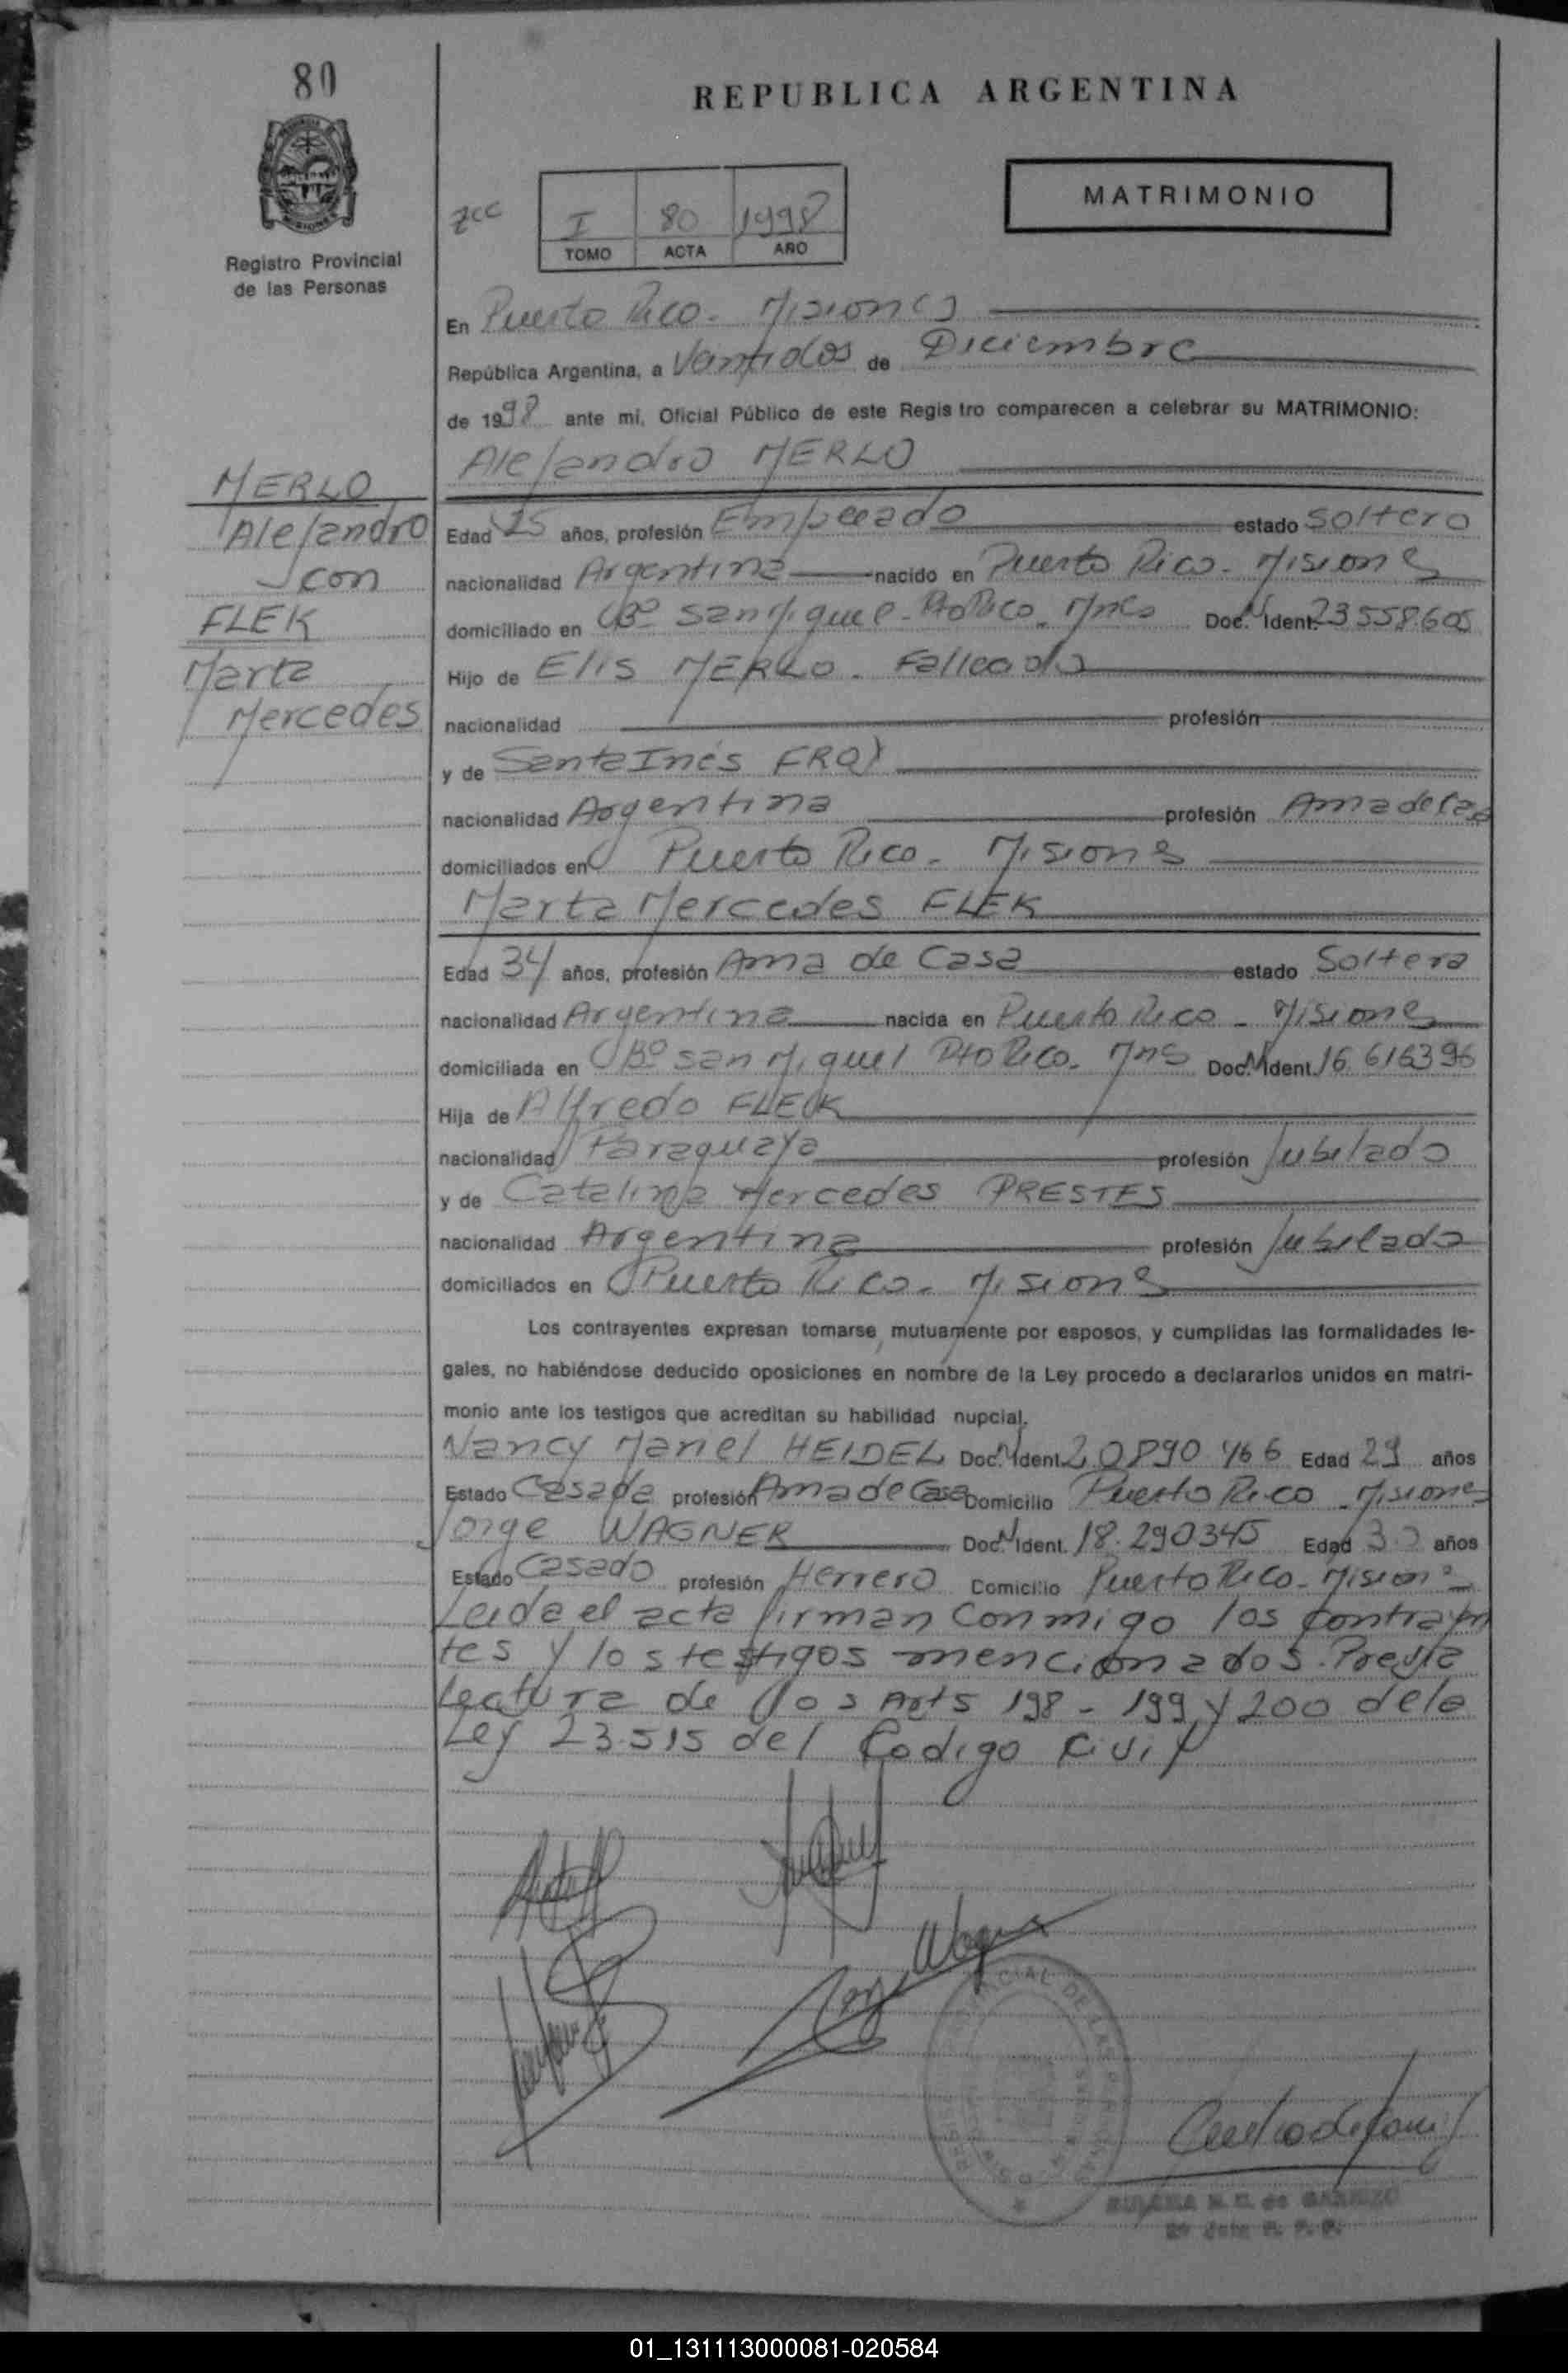 80
REPUBLICA ARGENTINA
MATRIMONIO
Registro Provincial
de las Personas
I 80 1998
TOMO ACTA AÑO
En Puerto Rico - Misiones
República Argentina, a Ventidos de Diciembre
de 1998 ante mí, Oficial Público de este Registro comparecen a celebrar su MATRIMONIO:
Alejandro MERLO
MERLO
Alejandro
con
FLEK
Marta
Mercedes
Edad 25 años, profesión Empleado estado Soltero
nacionalidad Argentina nacido en Puerto Rico - Misiones
domiciliado en Bº San Miguel - Pto Rico - Mnes Doc. N Ident. 23558605
Hijo de Elis MERLO - Fallecido
nacionalidad profesión
y de Santa Inés
nacionalidad Argentina profesión Ama de Casa
domiciliados en Puerto Rico - Misiones
Marta Mercedes FLEK
Edad 34 años, profesión Ama de Casa estado Soltera
nacionalidad Argentina nacida en Puerto Rico - Misiones
domiciliada en Bº San Miguel Pto Rico - Mns Doc. N Ident. 16.616396
Hija de Alfredo FLECK
nacionalidad Paraguaya profesión Jubilado
y de Catalina Mercedes PRESTES
nacionalidad Argentina profesión Jubilada
domiciliados en Puerto Rico - Misiones
Los contrayentes expresan tomarse mutuamente por esposos, y cumplidas las formalidades le-
gales, no habiéndose deducido oposiciones en nombre de la Ley procedo a declararlos unidos en matri-
monio ante los testigos que acreditan su habilidad nupcial.
Nancy Mariel HEIDEL Doc. N Ident. 20890466 Edad 29 años
Estado Casada profesión Ama de Casa Domicilio Puerto Rico - Misiones
Jorge WAGNER Doc. N Ident. 18.290345 Edad 30 años
Estado Casado profesión Herrero Domicilio Puerto Rico - Misiones
Leida el acta firman conmigo los contrayen
tes y los testigos mencionados. Previa
lectura de los Arts 198 - 199 y 200 de la
Ley 23.515 del Codigo Civil
01_131113000081-020584